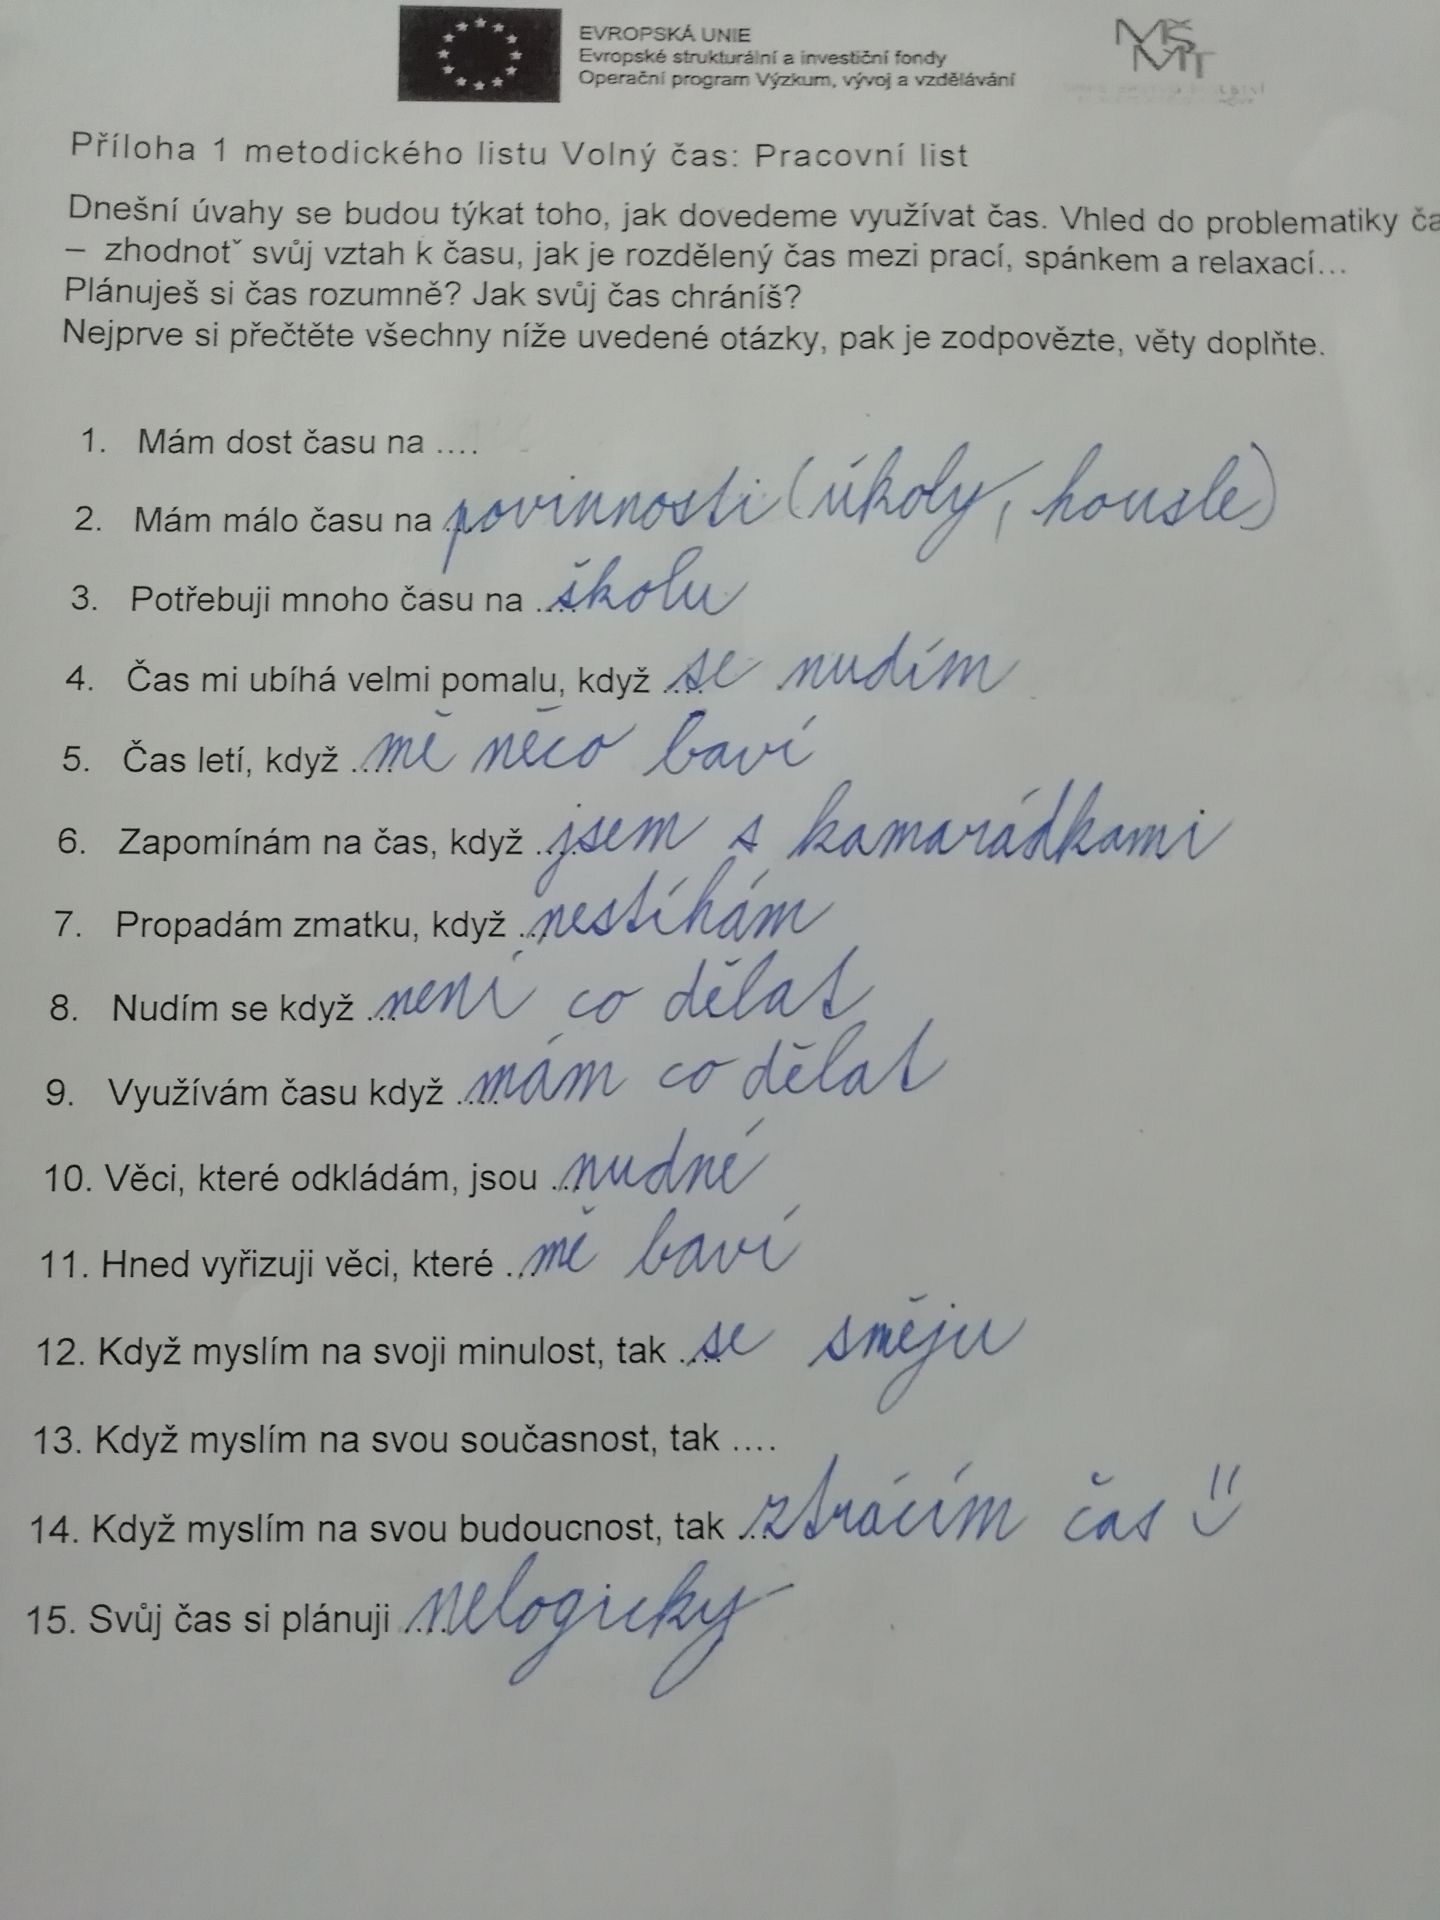 EVROPSKÁ UNIE
Evropské strukturální a investiční fondy
Operační program Výzkum, vývoj a vzdělávání
MŠMT
Příloha 1 metodického listu Volný čas: Pracovní list
Dnešní úvahy se budou týkat toho, jak dovedeme využívat čas. Vhled do problematiky ča
– zhodnotˇ svůj vztah k času, jak je rozdělený čas mezi prací, spánkem a relaxací...
Plánuješ si čas rozumně? Jak svůj čas chráníš?
Nejprve si přečtěte všechny níže uvedené otázky, pak je zodpovězte, věty doplňte.
1. Mám dost času na ....
2. Mám málo času na povinnosti (úkoly, housle)
3. Potřebuji mnoho času na .... školu
4. Čas mi ubíhá velmi pomalu, když .... se nudím
5. Čas letí, když .... mě něco baví
6. Zapomínám na čas, když .... jsem s kamarádkami
7. Propadám zmatku, když .... nestíhám
8. Nudím se když .... není co dělat
9. Využívám času když .... mám co dělat
10. Věci, které odkládám, jsou .... nudné
11. Hned vyřizuji věci, které .... mě baví
12. Když myslím na svoji minulost, tak .... se směju
13. Když myslím na svou současnost, tak ....
14. Když myslím na svou budoucnost, tak .... ztrácím čas
15. Svůj čas si plánuji .... nelogicky